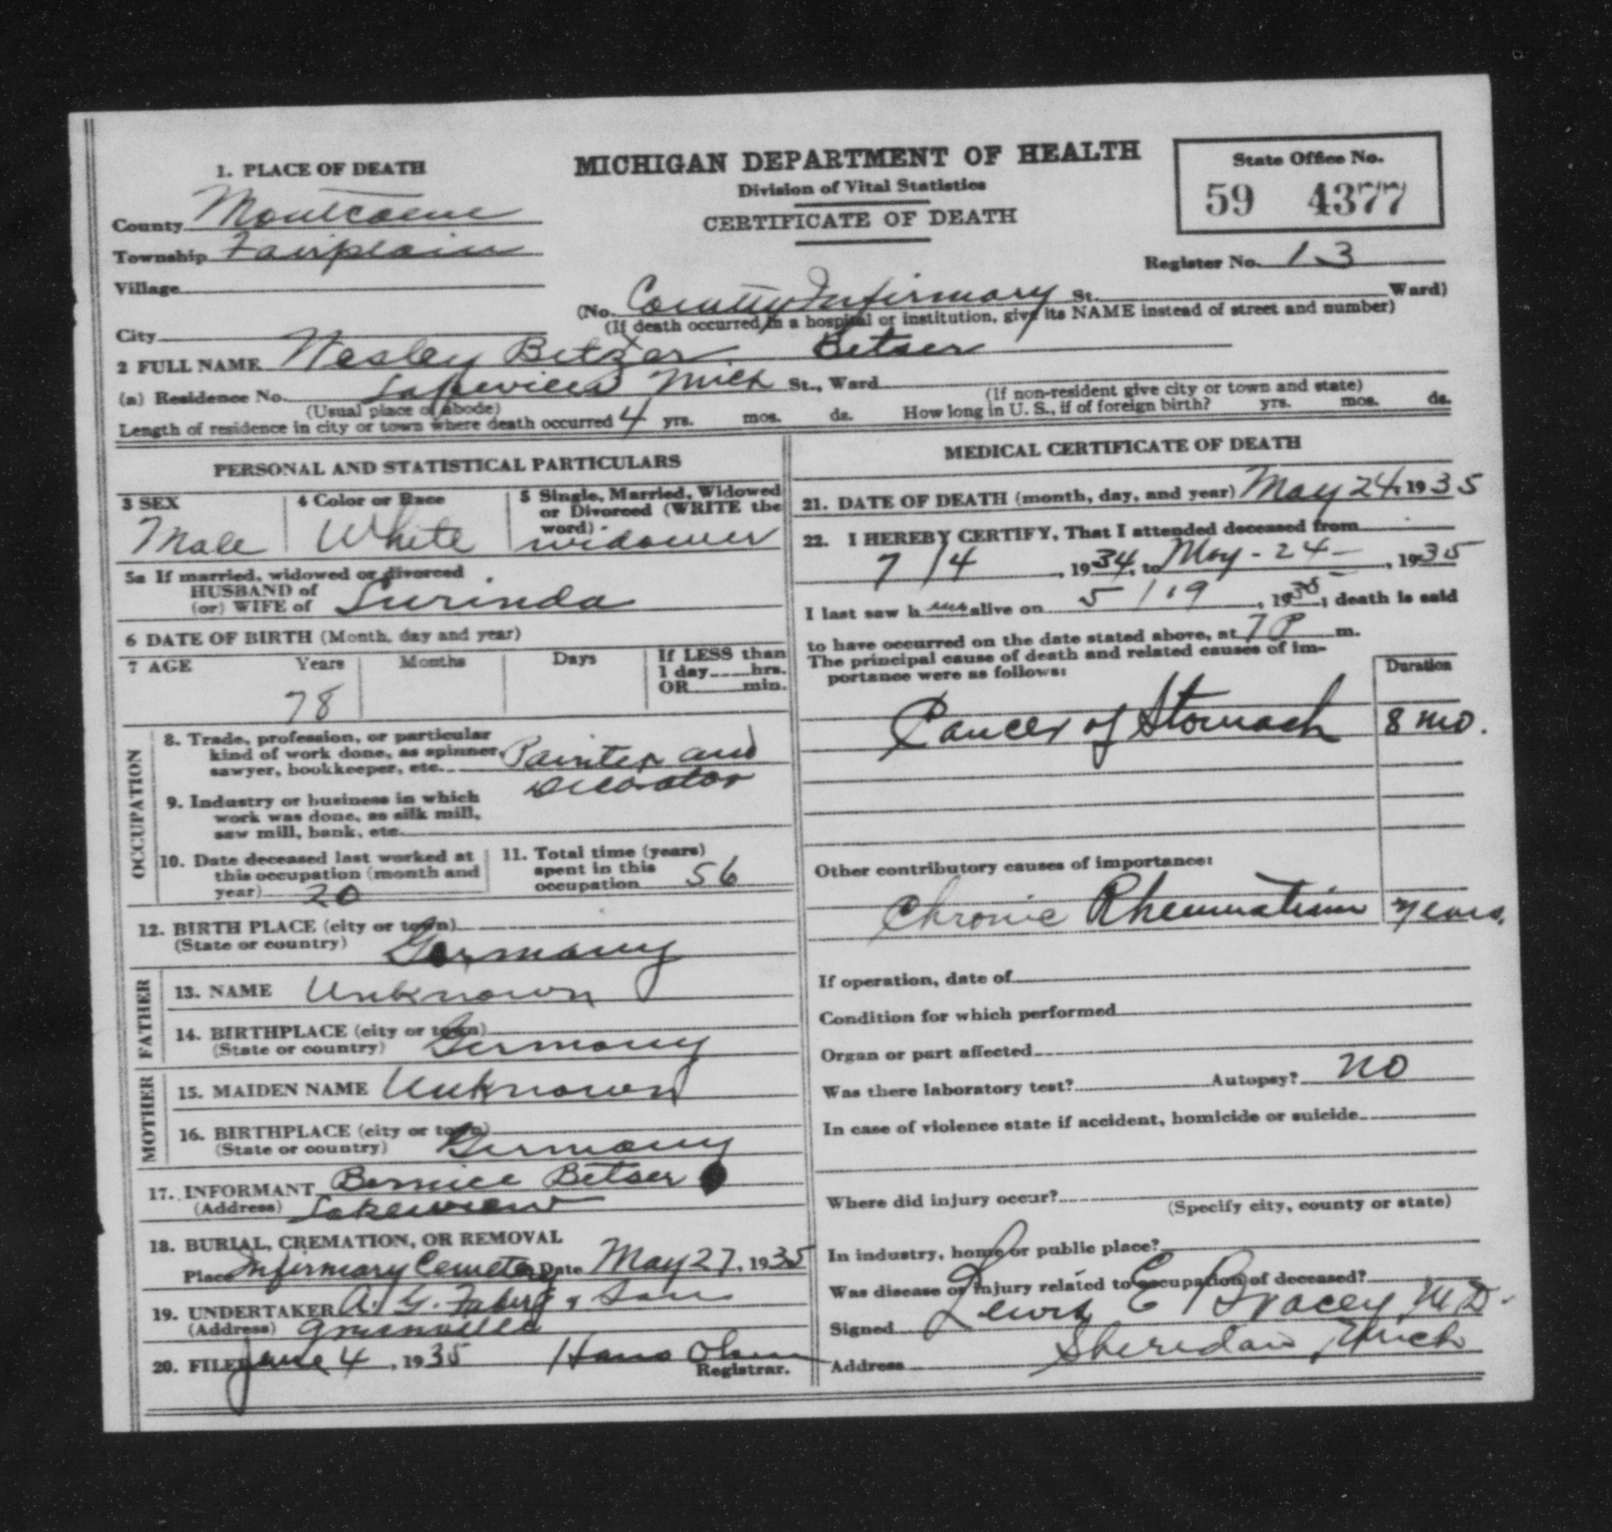 MICHIGAN DEPARTMENT OF HEALTH
Division of Vital Statistics
CERTIFICATE OF DEATH
State Office No.
59 4377
Register No. 13
1. PLACE OF DEATH
County Montcalm
Township Fairplain
Village
City
(No. County Infirmary St. Ward)
(If death occurred in a hospital or institution, give its NAME instead of street and number)
2 FULL NAME Wesley Betzer Betser
(a) Residence No. Lakeview Mich St., Ward
(Usual place of abode) (If non-resident give city or town and state)
Length of residence in city or town where death occurred 4 yrs. mos. ds. How long in U. S., if of foreign birth? yrs. mos. ds.
PERSONAL AND STATISTICAL PARTICULARS
3 SEX
Male
4 Color or Race
White
5 Single, Married, Widowed
or Divorced (WRITE the
word)
widower
5a If married, widowed or divorced
HUSBAND of
(or) WIFE of Lurinda
6 DATE OF BIRTH (Month, day and year)
7 AGE Years Months Days
78
If LESS than
1 day hrs.
OR min.
OCCUPATION
8. Trade, profession, or particular
kind of work done, as spinner,
sawyer, bookkeeper, etc. Painter and
Decorator
9. Industry or business in which
work was done, as silk mill,
saw mill, bank, etc.
10. Date deceased last worked at
this occupation (month and
year) 20
11. Total time (years)
spent in this
occupation 56
12. BIRTH PLACE (city or town)
(State or country) Germany
FATHER
13. NAME Unknown
14. BIRTHPLACE (city or town)
(State or country) Germany
MOTHER
15. MAIDEN NAME Unknown
16. BIRTHPLACE (city or town)
(State or country) Germany
17. INFORMANT Bernice Betser
(Address) Lakeview
18. BURIAL, CREMATION, OR REMOVAL
Place Infirmary Cemetery Date May 27, 1935
19. UNDERTAKER A. G. & Son
(Address) Greenville
20. FILED June 4, 1935 Hans
Registrar.
MEDICAL CERTIFICATE OF DEATH
21. DATE OF DEATH (month, day, and year) May 24, 1935
22. I HEREBY CERTIFY, That I attended deceased from
7/4, 1934, to May - 24 -, 1935
I last saw h im alive on 5/19, 1935; death is said
to have occurred on the date stated above, at 7 P m.
The principal cause of death and related causes of im-
portance were as follows:
Duration
Cancer of Stomach 8 mo.
Other contributory causes of importance:
Chronic Rheumatism years.
If operation, date of
Condition for which performed
Organ or part affected
Was there laboratory test? Autopsy? no
In case of violence state if accident, homicide or suicide
Where did injury occur?
(Specify city, county or state)
In industry, home or public place?
Was disease or injury related to occupation of deceased?
Signed Lewis E Bracey M.D.
Address Sheridan, Mich